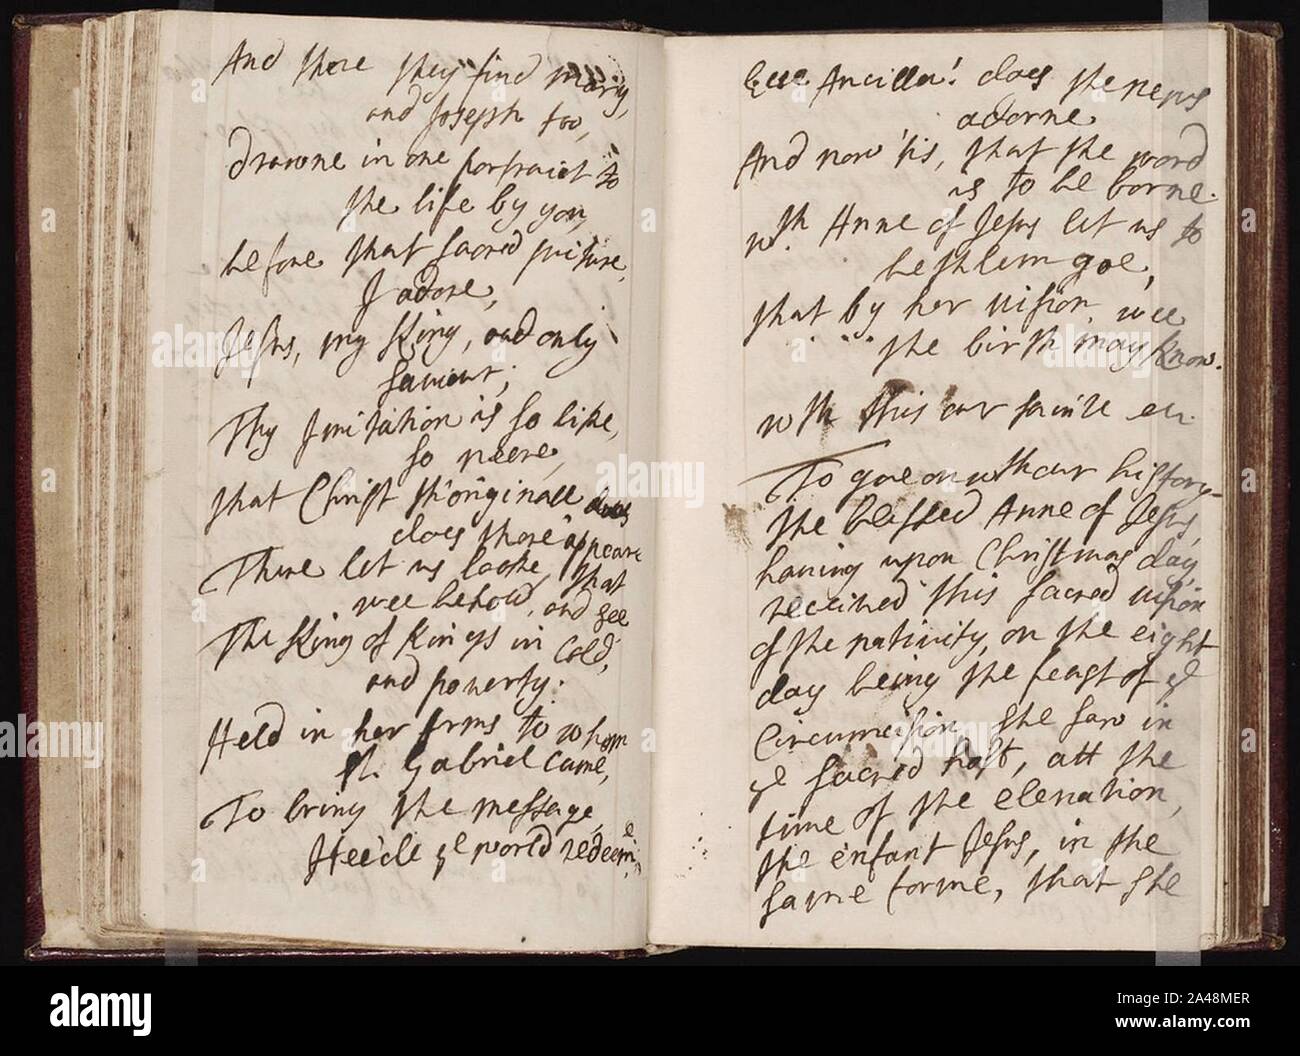 And there they find mary,
and Joseph too,
drawne in one portraict to
the life by you,
before that sacred picture,
I adore,
Jesus, my King, and only
saviour;
Thy Imitation is so like,
so neere,
that Christ th'originall
does there appeare
There let us looke, that
wee behold, and see
The King of Kings in cold,
and poverty.
Held in her arms to whom
st. Gabriel came,
To bring the message,
Hee'le ye world redeeme,
Ecce Ancilla! does the news
adorne
And now 'tis, that the word
is to be borne.
wth Anne of Jesus let us to
bethlem goe,
that by her vision, wee
the birth may know.
wth this our
To goe on with our history
the blessed Anne of Jesus,
having upon Christmas day,
received this sacred vision
of the nativity, on the eight
day being the feast of ye
Circumcision she saw in
ye sacred hast, att the
time of the elevation,
the enfant Jesus, in the
same forme, that she
alamy
Image ID: 2A48MER
www.alamy.com